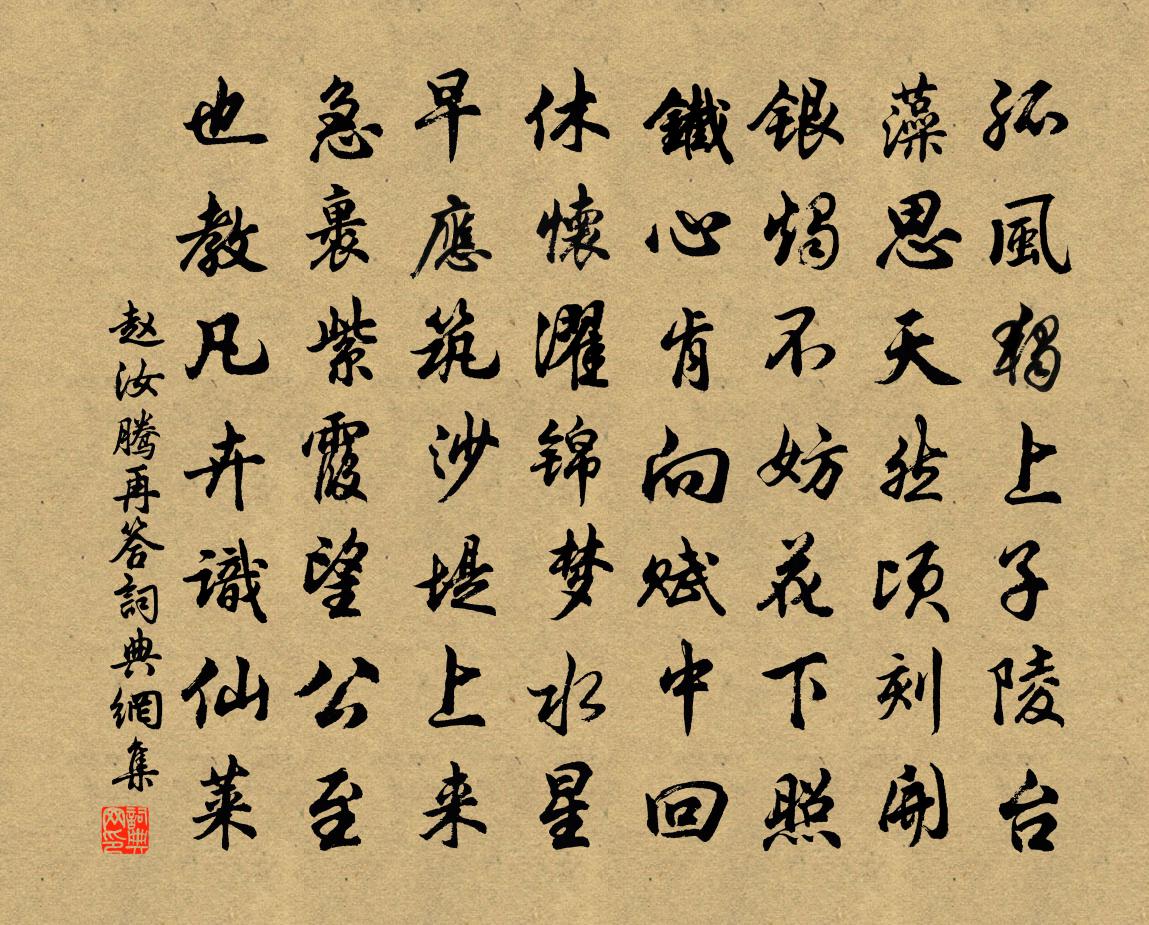 孤風獨上子陵台
藻思天然頃刻開
银燭不妨花下照
鐵心肯向赋中回
休懷濯锦梦水星
早應筑沙堤上来
急裹紫霞望公至
也教凡卉識仙莱
赵汝腾再答詞典網集
詞典网印